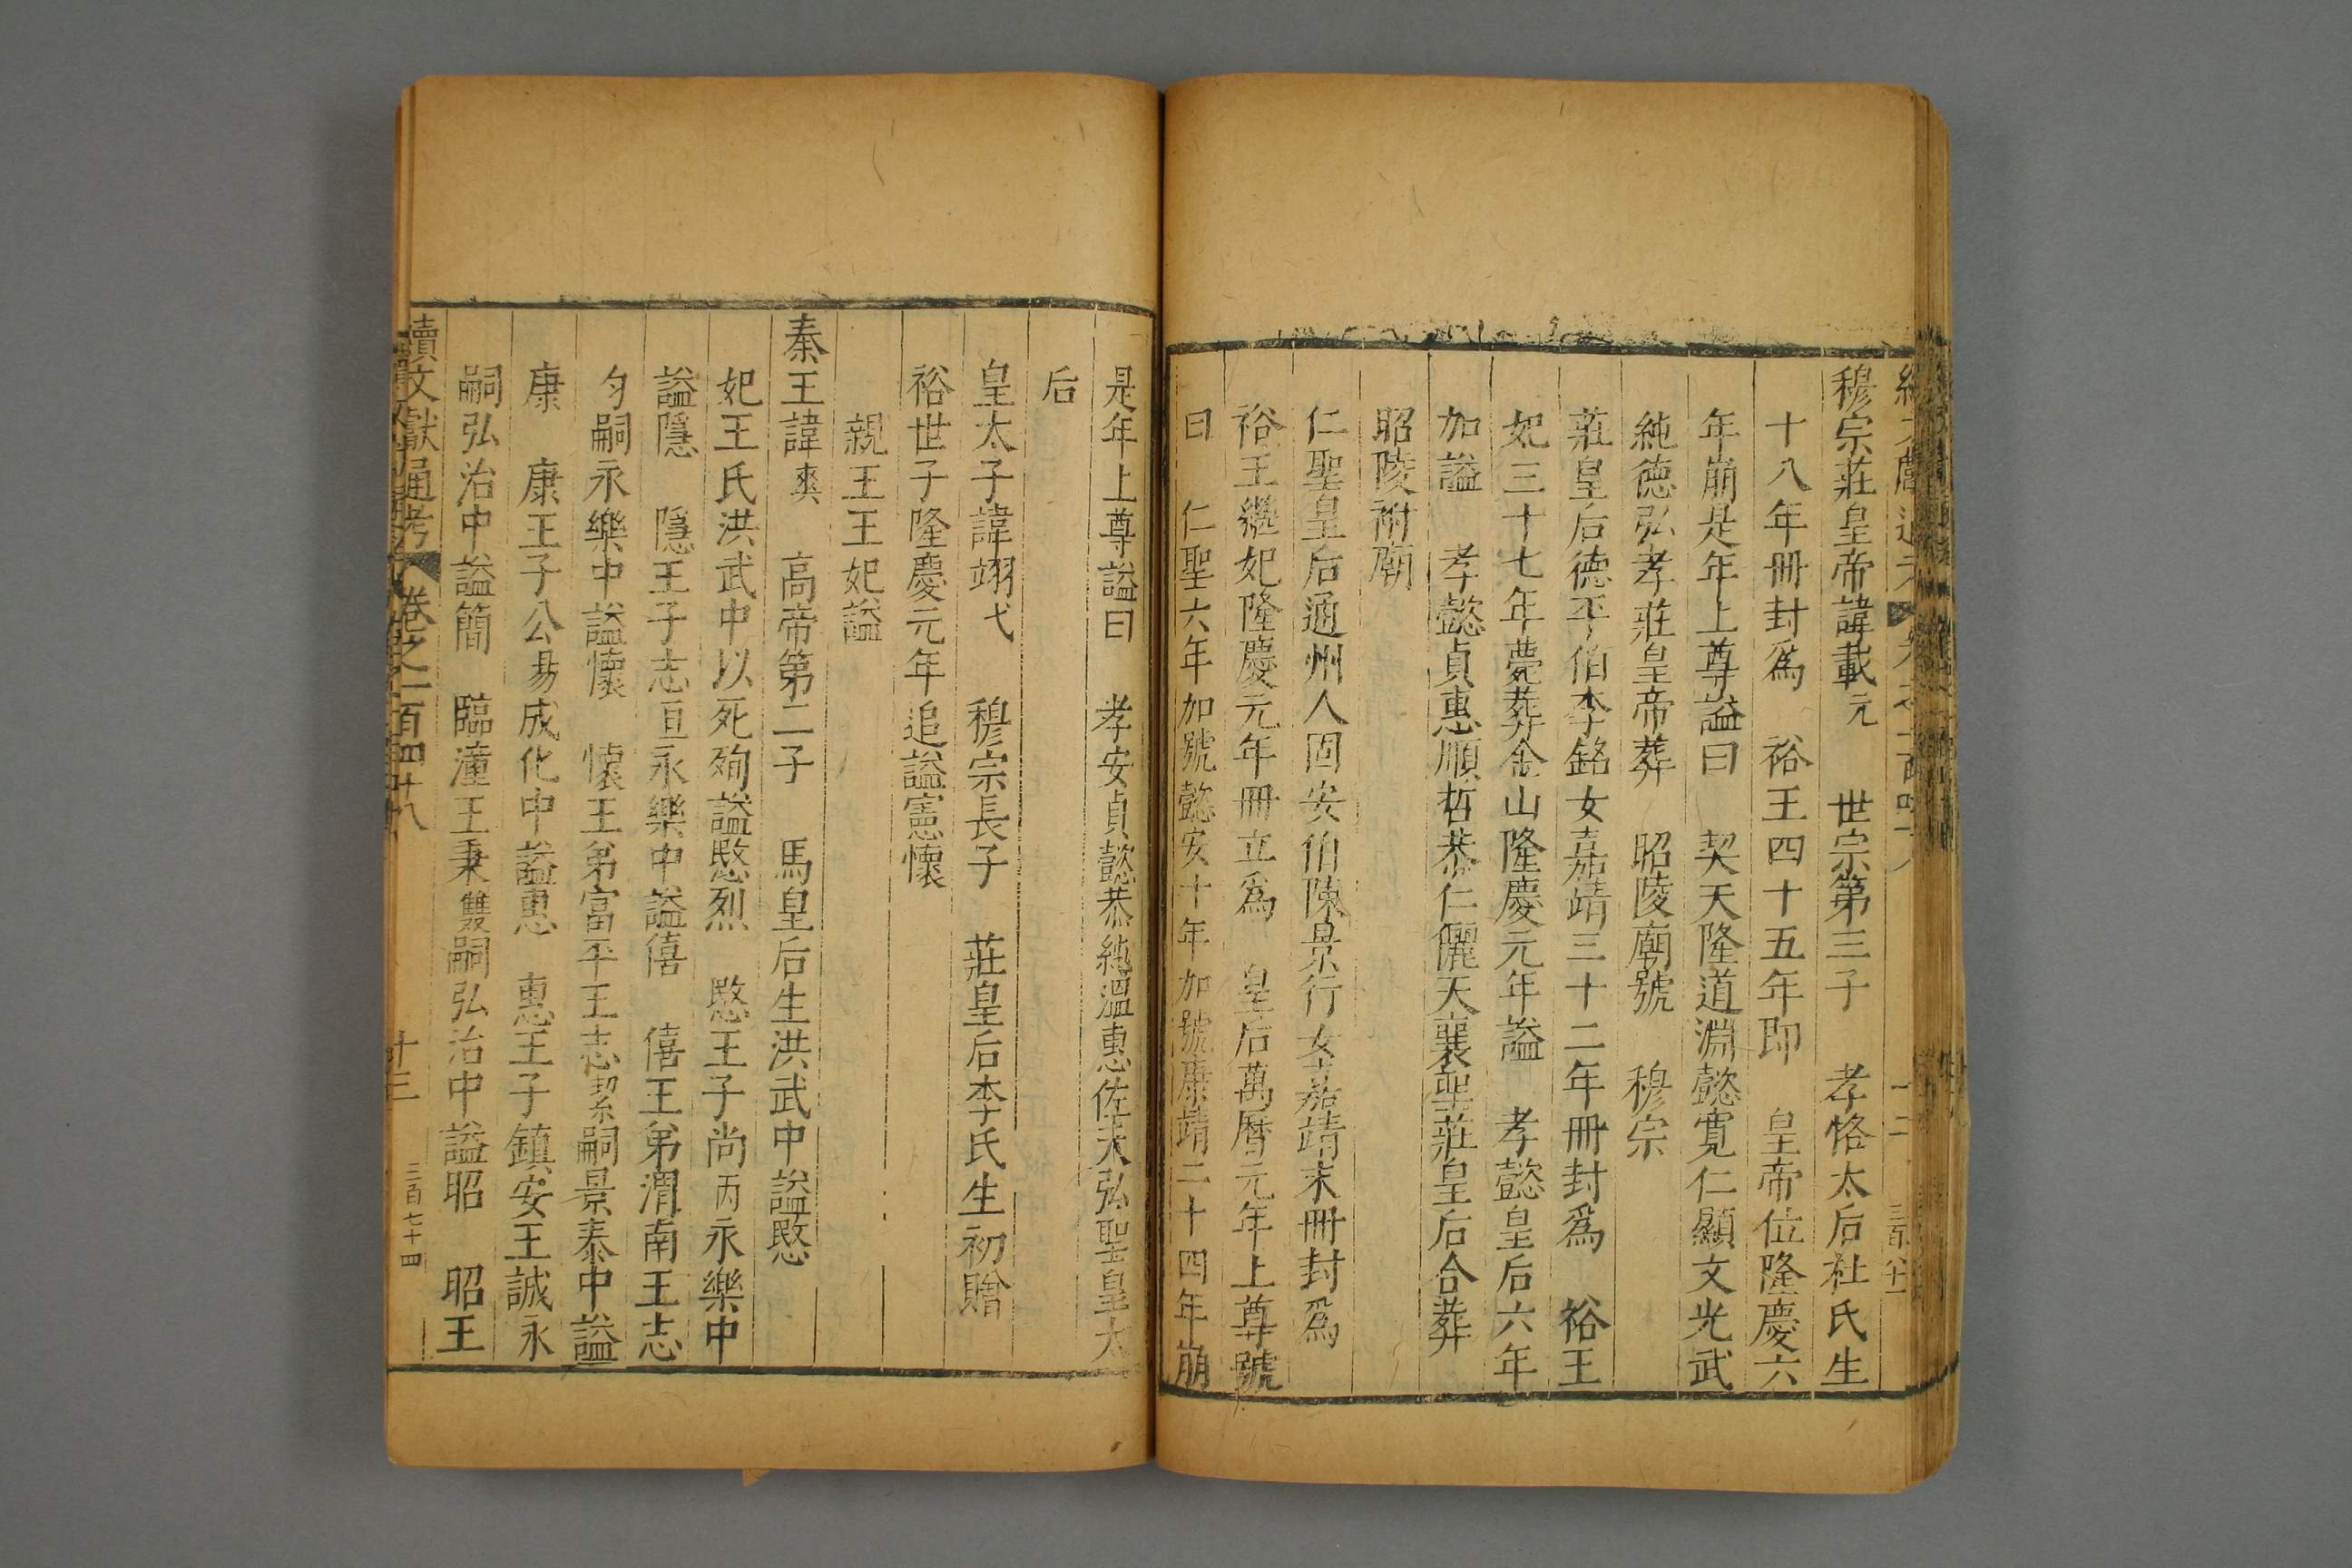 穆宗莊皇帝諱載元　世宗第三子　孝恪太后杜氏生
十八年冊封爲　裕王四十五年即　皇帝位隆慶六
年崩是年上尊謚曰　契天隆道淵懿寬仁顯文光武
純德弘孝莊皇帝葬　昭陵廟號　穆宗
莊皇后德平伯李銘女嘉靖三十二年冊封爲　裕王
妃三十七年薨葬金山隆慶元年謚　孝懿皇后六年
加謚　孝懿貞惠順哲恭仁儷天襄聖莊皇后合葬
昭陵祔廟
仁聖皇后通州人固安伯陳景行女嘉靖末冊封爲
裕王繼妃隆慶元年冊立爲　皇后萬曆元年上尊號
曰　仁聖六年加號懿安十年加號康靖二十四年崩
是年上尊謚曰　孝安貞懿恭純溫惠佐天弘聖皇太
后
皇太子諱翊弋　穆宗長子　莊皇后李氏生初贈
裕世子隆慶元年追謚憲懷
親王王妃謚
秦王諱樉　高帝第二子　馬皇后生洪武中謚愍
妃王氏洪武中以死殉謚愍烈　愍王子尚丙永樂中
謚隱　隱王子志亘永樂中謚僖　僖王弟渭南王志
均嗣永樂中謚懷　懷王弟富平王志㓗嗣景泰中謚
康　康王子公昜成化中謚惠　惠王子鎮安王誠永
嗣弘治中謚簡　臨潼王秉雙嗣弘治中謚昭　昭王
續文獻通考　卷之二百四十八　十三　三百七十四